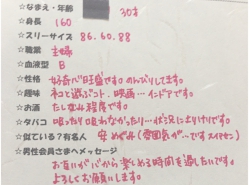 ☆なまえ・年齢 30才
☆身長 160
☆スリーサイズ 86.60.88
☆職業 主婦
☆血液型 B
☆性格 好奇心旺盛です。のんびりしてます。
☆趣味 ネコと遊ぶコト.映画…インドアです。
☆お酒 たしなみ程度です。
☆タバコ 吸ったり吸わなかったり…状況によりけりです。
☆似ている?有名人 安めぐみ(雰囲気が…です スイマセン)
☆男性会員さまへメッセージ
お互いがバから、楽しめる時間を過したいです。
よろしくお願いします。